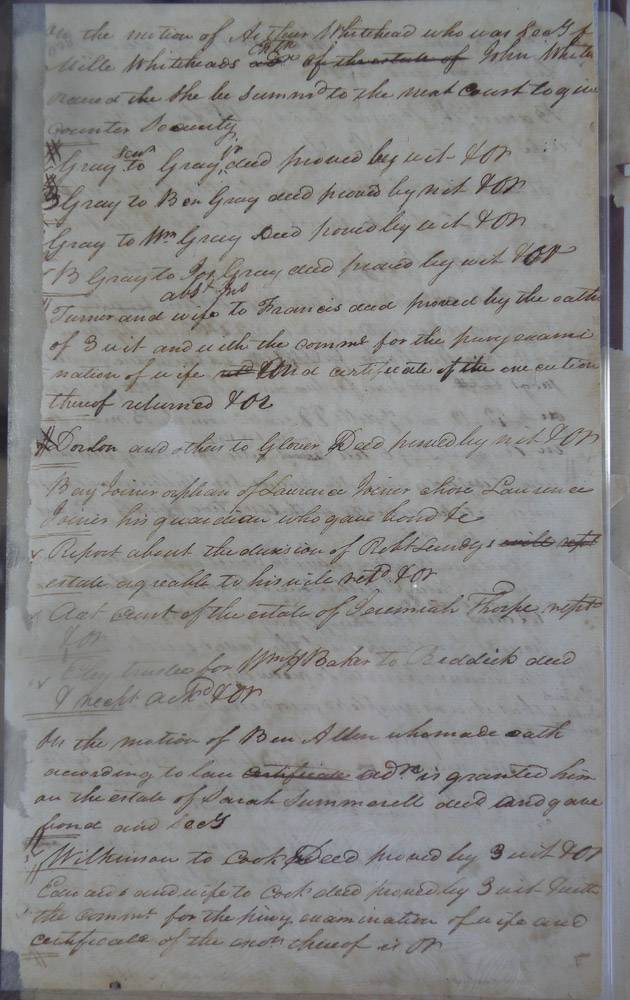 On the motion of Arthur Whitehead who was Secy f
Mille Whiteheads adx Extx of the estate of John White
ordered the She be Summd to the next court to give
Counter Security
Gray Senr to Gray Jr, deed proved by wit & OR
Gray to Ben Gray deed proved by wit & OR
Gray to Wm Gray Deed proved by wit & OR
B Gray to Jos Gray deed proved by wit & OR
Turner and wife to Francis deed proved by the oath
of 3 wit and with the commn for the privy exami
nation of wife and certificate of the execution
thereof returned & OR
and others to Glover Deed proved by wit & OR
Benj Joiner orphan of Laurence Joiner chose Laurence
Joiner his guardian who gave bond &c
Report about the division of Robt Lundys
estate agreable to his will retd & OR
Act curnt of the estate of Jeremiah Thorpe
& OR
Eley trustee for Wm H Baker to Reddick deed
& recpt ackd & OR
On the motion of Ben Allen who made oath
according to law certificate adn is granted him
on the estate of Sarah Summerell decd and gave
bond and Secy
Wilkinson to Cook Deed proved by 3 wit & OR
Edwards and wife to Cook deed proved by 3 wit & with
the commn for the privy examination of wife and
certificate of the exon thereof is OR